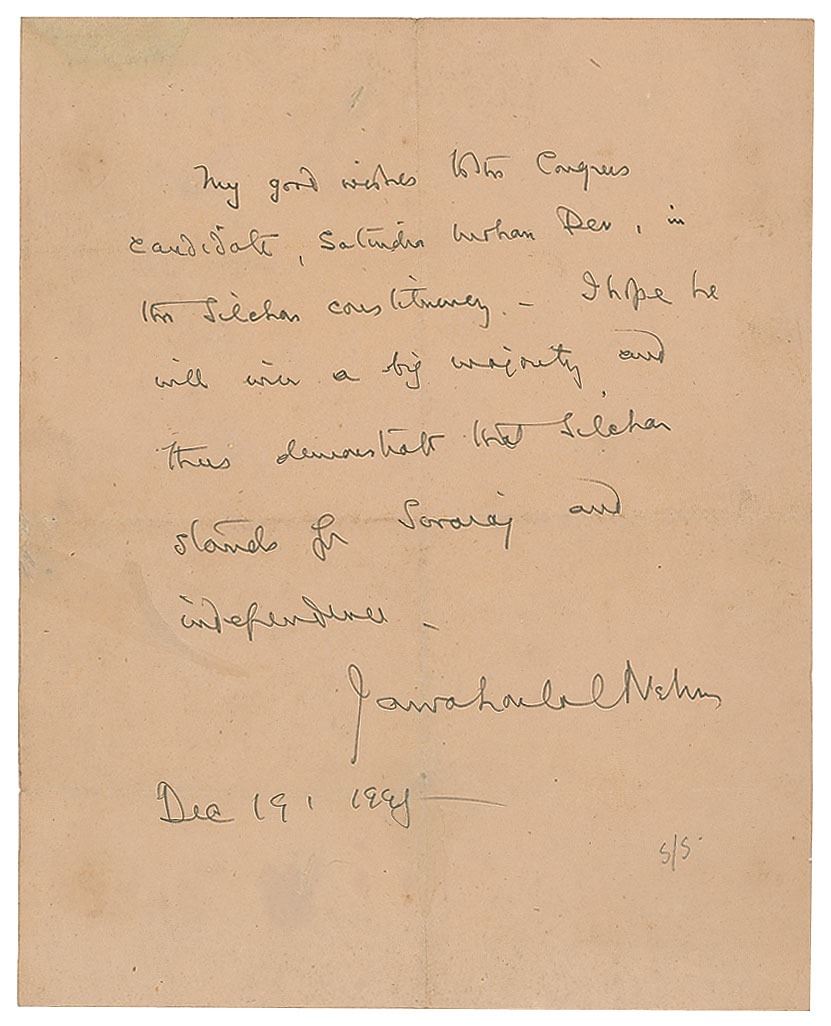 My good wishes to the Congress
candidate, Satindra Mohan Dev, in
the Silchar constituency. — I hope he
will win a big majority and
thus demonstrate that Silchar
stands for Swaraj and
independence —
Jawaharlal Nehru
Dec 19, 1945
5/5